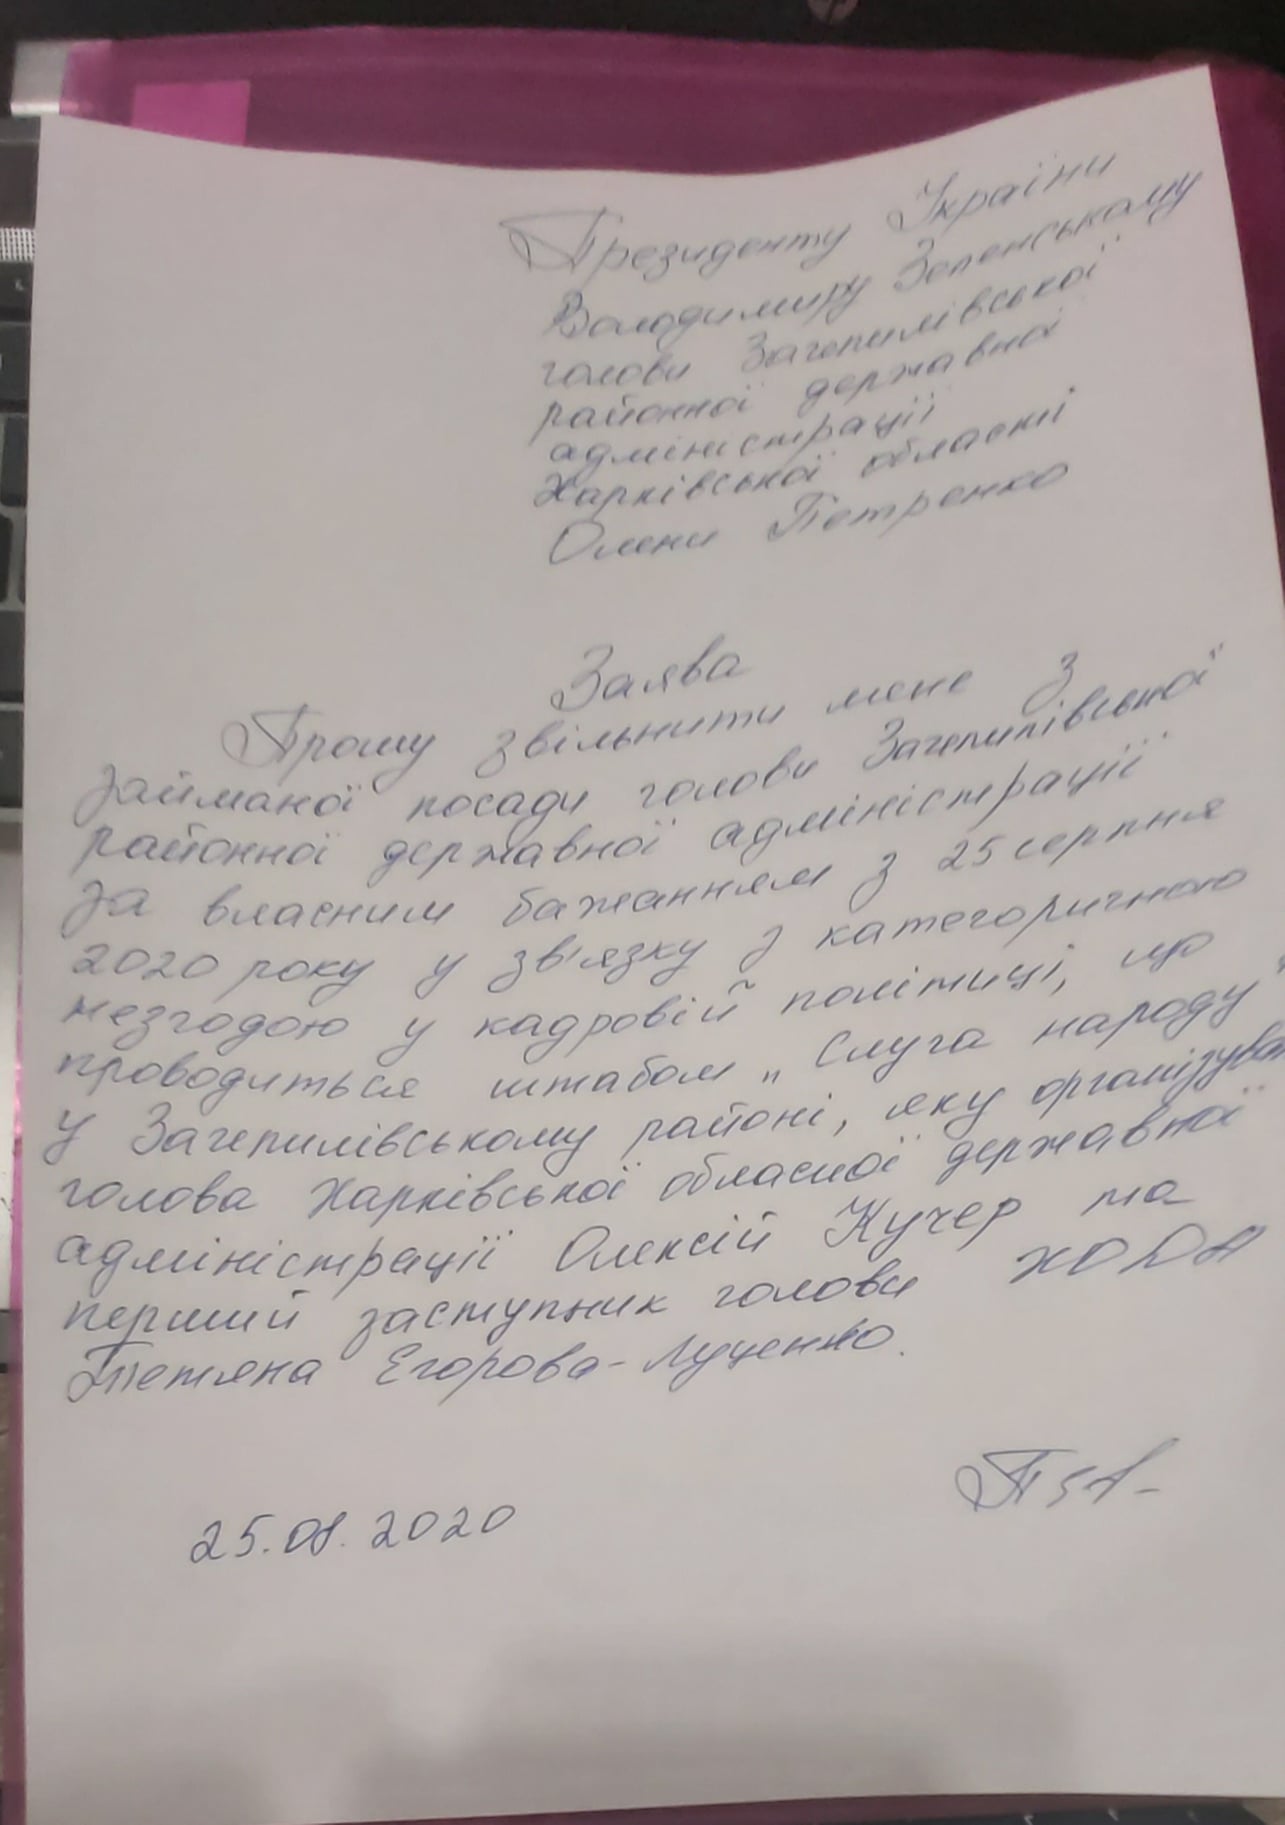 Президенту України
Володимиру Зеленському
голови Зачепилівської
районної державної
адміністрації
Харківської області
Олени Петренко
Заява
Прошу звільнити мене з
займаної посади голови Зачепилівської
районної державної адміністрації
за власним бажанням з 25 серпня
2020 року у зв'язку з категоричною
незгодою у кадровій політиці, що
проводиться штабом „Слуга народу"
у Зачепилівському районі, яку організував
голова Харківської обласної державної
адміністрації Олексій Кучер та
перший заступник голови ХОДА
Тетяна Егорова-Луценко.
25.08.2020